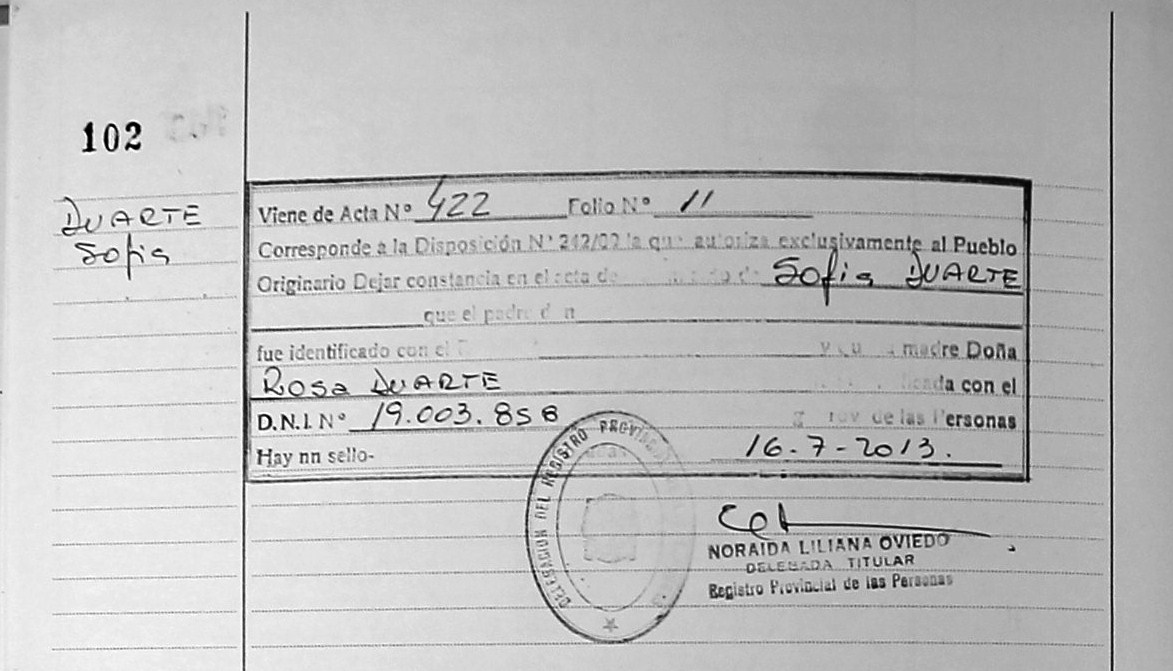 102
DUARTE
Sofia
Viene de Acta Nº 422 Folio Nº 11
Corresponde a la Disposición Nº 242/02 la que autoriza exclusivamente al Pueblo
Originario Dejar constancia en el acta de Sofia DUARTE
que el padre
fue identificado con el madre Doña
Rosa DUARTE con el
D.N.I. Nº 19.003.858 de las Personas
Hay nn sello- 16-7-2013.
DELEGACION DEL REGISTRO
NORAIDA LILIANA OVIEDO
DELEGADA TITULAR
Registro Provincial de las Personas